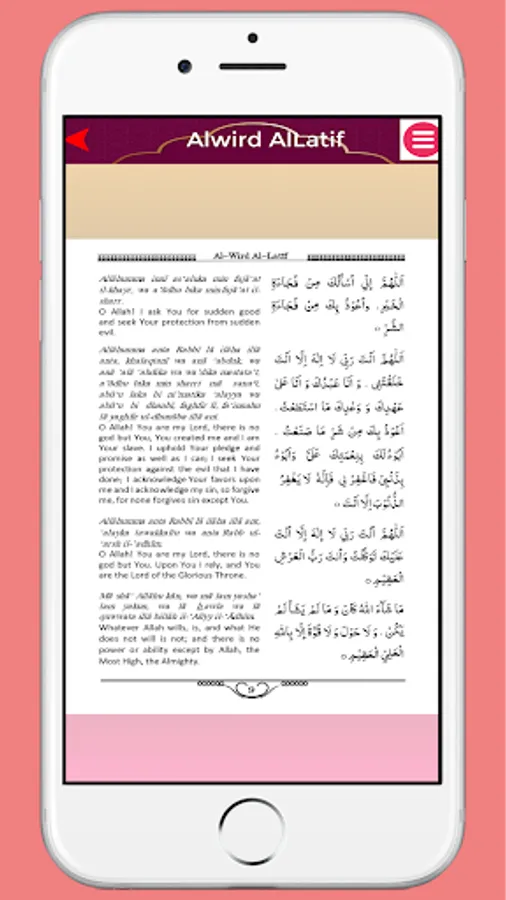 Alwird AlLatif
Al–Wird Al–Latif
Allâhumma innî as'aluka min fujâ'ati
l-khayr, wa a'ûdhu bika min fujâ'ati sh-
sharr.
O Allah! I ask You for sudden good
and seek Your protection from sudden
evil.
اَللّٰهُمَّ إِنِّي أَسْأَلُكَ مِنْ فُجَاءَةِ
الْخَيْرِ . وأَعُوْذُ بِكَ مِنْ فُجَاءَةِ
الشَّرِّ ٥
Allâhumma anta Rabbî lâ ilâha illâ
anta, khalaqtanî wa anâ 'abduk, wa
O Allah! You are my Lord, there is no
god but You, You created me and I am
Your slave. I uphold Your pledge and
promise as well as I can; I seek Your
protection against the evil that I have
done; I acknowledge Your favors upon
me and I acknowledge my sin, so forgive
me, for none forgives sin except You.
اَللّٰهُمَّ أَنْتَ رَبِّي لَا إِلٰهَ إِلَّا أَنْتَ
خَلَقْتَنِي . وَ أَنَا عَبْدُكَ وَ أَنَا عَلَى
عَهْدِكَ وَ وَعْدِكَ مَا اسْتَطَعْتُ .
أَعُوْذُ بِكَ مِنْ شَرِّ مَا صَنَعْتُ .
أَبُوْءُ لَكَ بِنِعْمَتِكَ عَلَيَّ وَأَبُوْءُ
بِذَنْبِيْ فَاغْفِرْ لِي فَإِنَّهُ لَا يَغْفِرُ
الذُّنُوْبَ إِلَّا أَنْتَ ٥
Allâhumma anta Rabbî lâ ilâha illâ ant,
'alayka tawakkaltu wa anta Rabb ul-
'arsh il-'adhîm.
O Allah! You are my Lord, there is no
god but You. Upon You I rely, and You
are the Lord of the Glorious Throne.
اَللّٰهُمَّ أَنْتَ رَبِّي لَا إِلٰهَ إِلَّا أَنْتَ
عَلَيْكَ تَوَكَّلْتُ وَأَنْتَ رَبُّ الْعَرْشِ
الْعَظِيْمِ ٥
Whatever Allah wills, is, and what He
does not will is not; and there is no
power or ability except by Allah, the
Most High, the Almighty.
مَا شَآءَ اللهُ كَانَ وَ مَا لَمْ يَشَأْ لَمْ
يَكُنْ . وَ لَا حَوْلَ وَ لَا قُوَّةَ إِلَّا بِاللهِ
الْعَلِيِّ الْعَظِيْمِ ٥
9